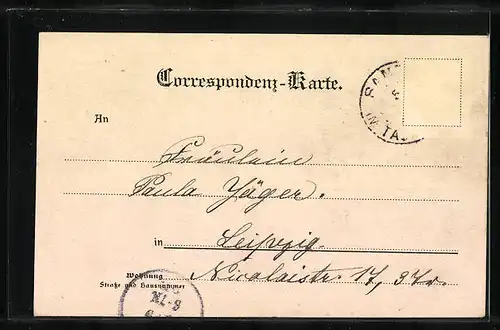 Correspondenz-Karte.
An
Fräulein
Paula Jäger.
in Leipzig
Wohnung
Straße und Hausnummer
Nicolaistr. 17,